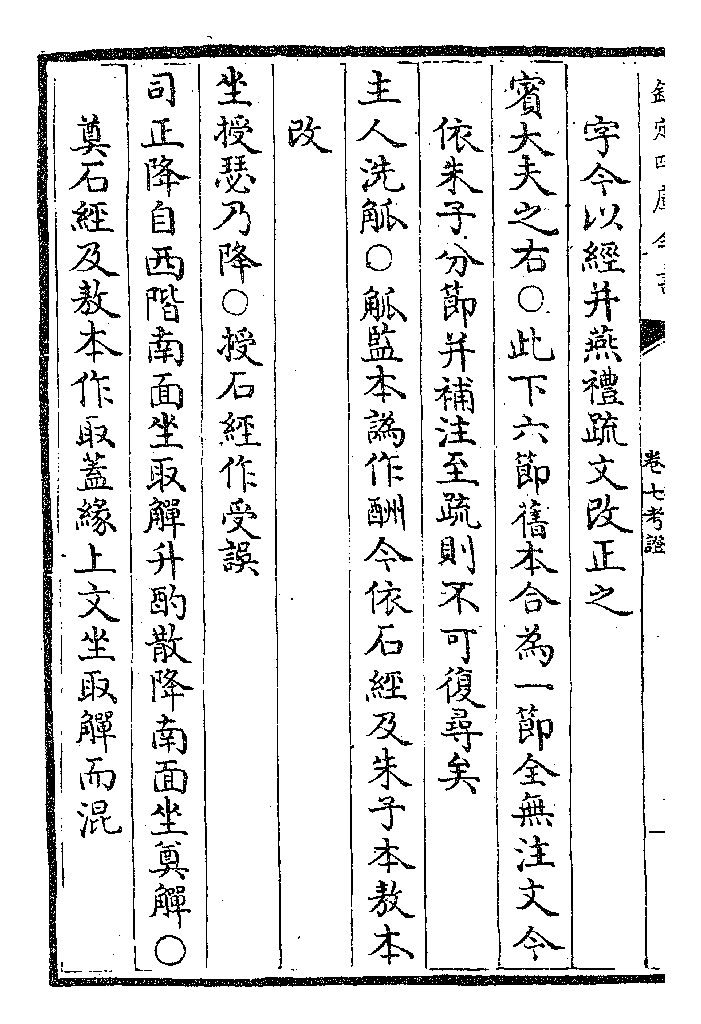 欽定四庫全書
卷七考證
字今以經并燕禮疏文改正之
賓大夫之右○此下六節舊本合為一節全無注文今
依朱子分節并補注至疏則不可復尋矣
主人洗觚○觚監本譌作酬今依石經及朱子本敖本
改
坐授瑟乃降○授石經作受誤
司正降自西階南面坐取觶升酌散降南面坐奠觶○
奠石經及敖本作取蓋緣上文坐取觶而混